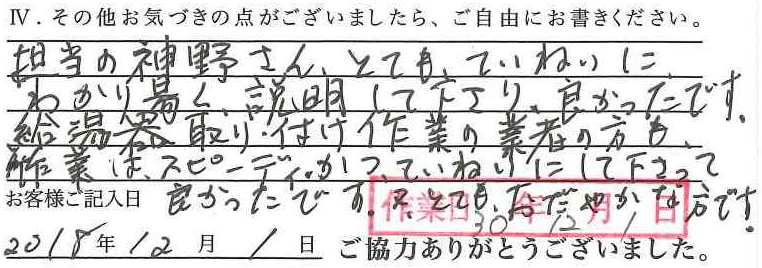 Ⅳ．その他お気づきの点がございましたら、ご自由にお書きください。
担当の神野さん、とても、ていねいに、
わかり易く、説明して下さり、良かったです。
給湯器取り付け作業の業者の方も、
作業は、スピーディ、かつ、ていねいにして下さって
お客様ご記入日 良かったです。又、とても、おだやかな方です。
作業日 30年12月1日
2018年12月1日 ご協力ありがとうございました。